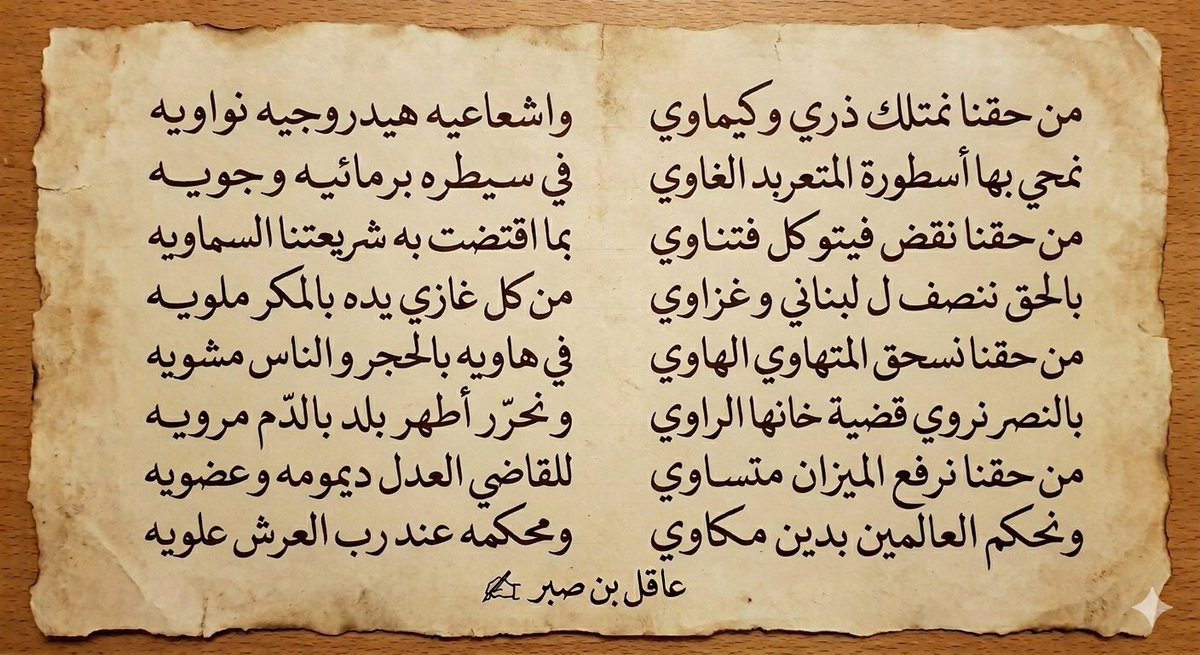 من حقنا نمتلك ذري وكيماوي واشعاعيه هيدروجيه نواويه
نمحي بها أسطورة المتعربد الغاوي في سيطره برمائيه وجويه
من حقنا نقض فيتو كل فتناوي بما اقتضت به شريعتنا السماويه
بالحق ننصف ل لبناني وغزاوي من كل غازي يده بالمكر ملويه
من حقنا نسحق المتهاوي الهاوي في هاويه بالحجر والناس مشويه
بالنصر نروي قضية خانها الراوي ونحرّر أطهر بلد بالدّم مرويه
من حقنا نرفع الميزان متساوي للقاضي العدل ديمومه وعضويه
ونحكم العالمين بدين مكاوي ومحكمه عند رب العرش علويه
عاقل بن صبر ✍